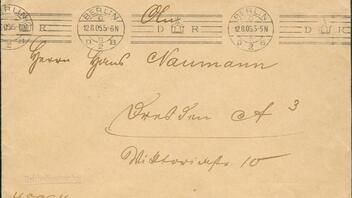 BERLIN
12.8.05.5-6N
D R
BERLIN
12.8.05.5-6N
D R
Herrn Hans Naumann
Dresden A 3
Viktoriastr 10